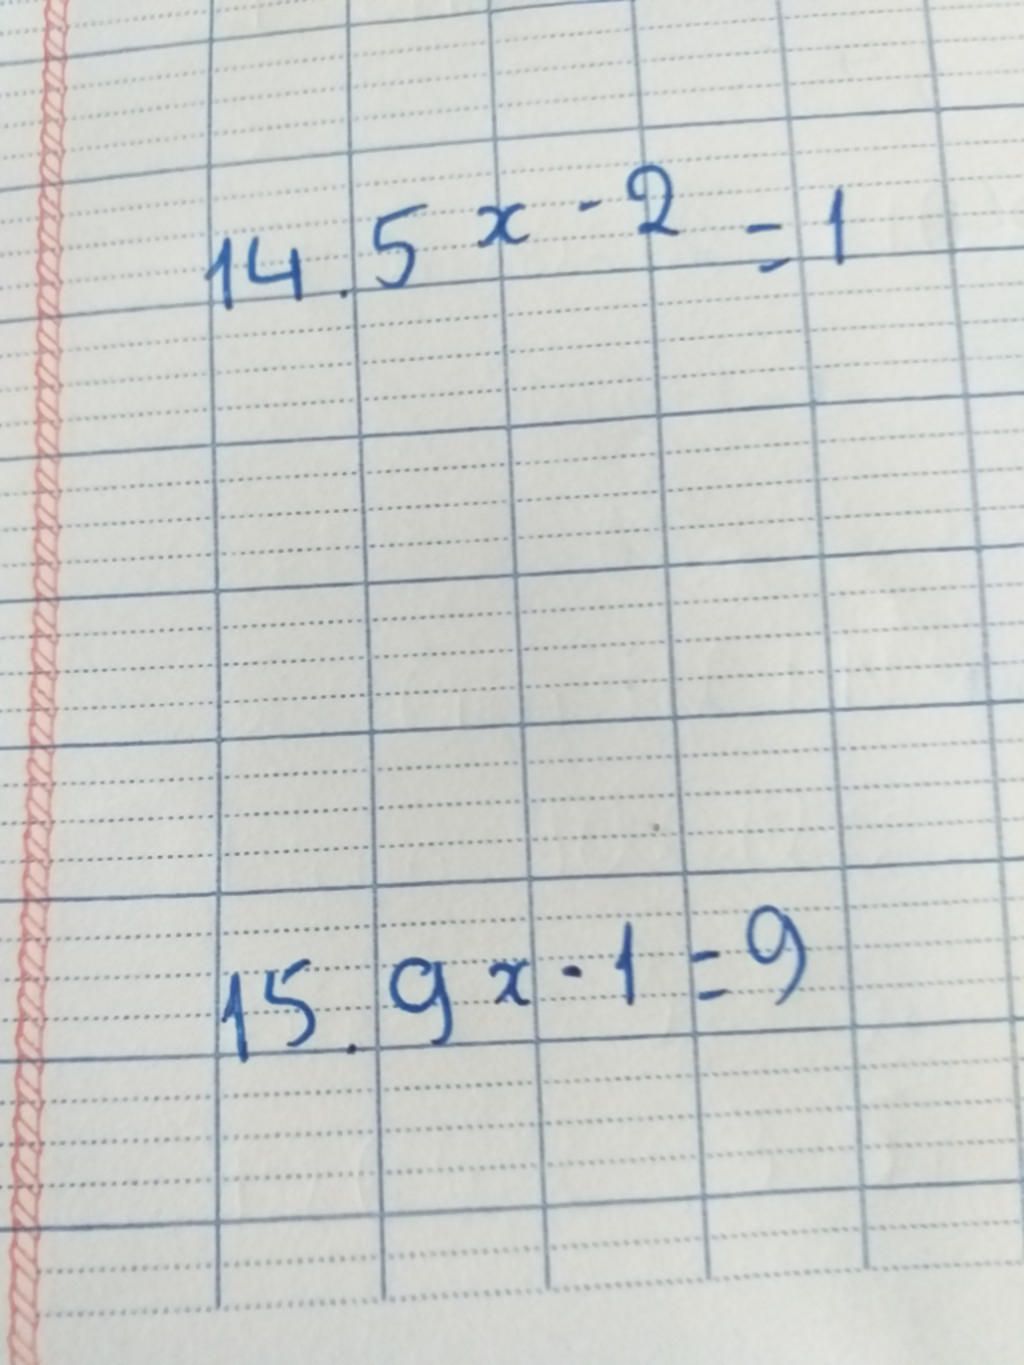 14. 5^{x-2} = 1
15. 9^{x-1} = 9